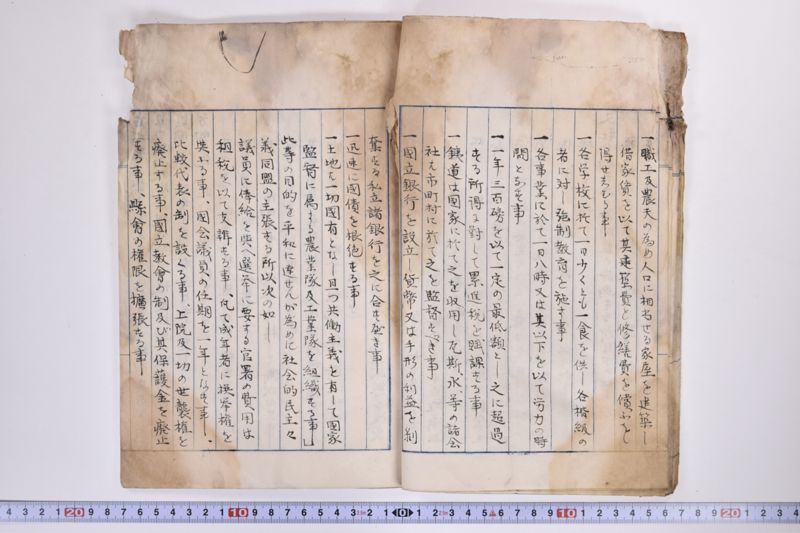 一職工及農夫の為め人口に相当せる家屋を建築し
借家賃を以て其建築費と修繕費を償ふを
得せしむる事
一各学校に於て一日少くとも一食を供し各階級の
者に対し強制教育を施す事
一各事業に於て一日八時又は其以下を以て労力の時
間となす事
一一年三百磅を以て一定の最低額とし之に超過
する所得に対して累進税を賦課する事
一鉄道は国家に於て之を収用し瓦斯、水等の諸会
社は市町村に於て之を監督すべき事
一国立銀行を設立し貨幣又は手形の利益を剥
奪する私立諸銀行を之に合すべき事
一迅速に国債を根絶する事
一土地を一切国有となし且つ共働主義を有して国家
監督に属する農業隊及工業隊を組織する事」
此等の目的を平和に達せんが為めに社会的民主々
義同盟の主張する所以次の如し
議員に俸給を与へ選挙に要する官署の費用は
租税を以て支辨する事、凡て成年者に撰挙権を
与ふる事、国会議員の任期を一年となす事、
比較代表の制を設くる事、上院及一切の世襲権を
廃止する事、国立教会の制及び其保護金を廃止
する事、縣會の権限を擴張する事
4 3 2 1 20 9 8 7 6 5 4 3 2 1 10 9 8 7 6 5 4 3 2 1 0 1 2 3 4 5 6 7 8 9 10 1 2 3 4 5 6 7 8 9 20 1 2 3 4